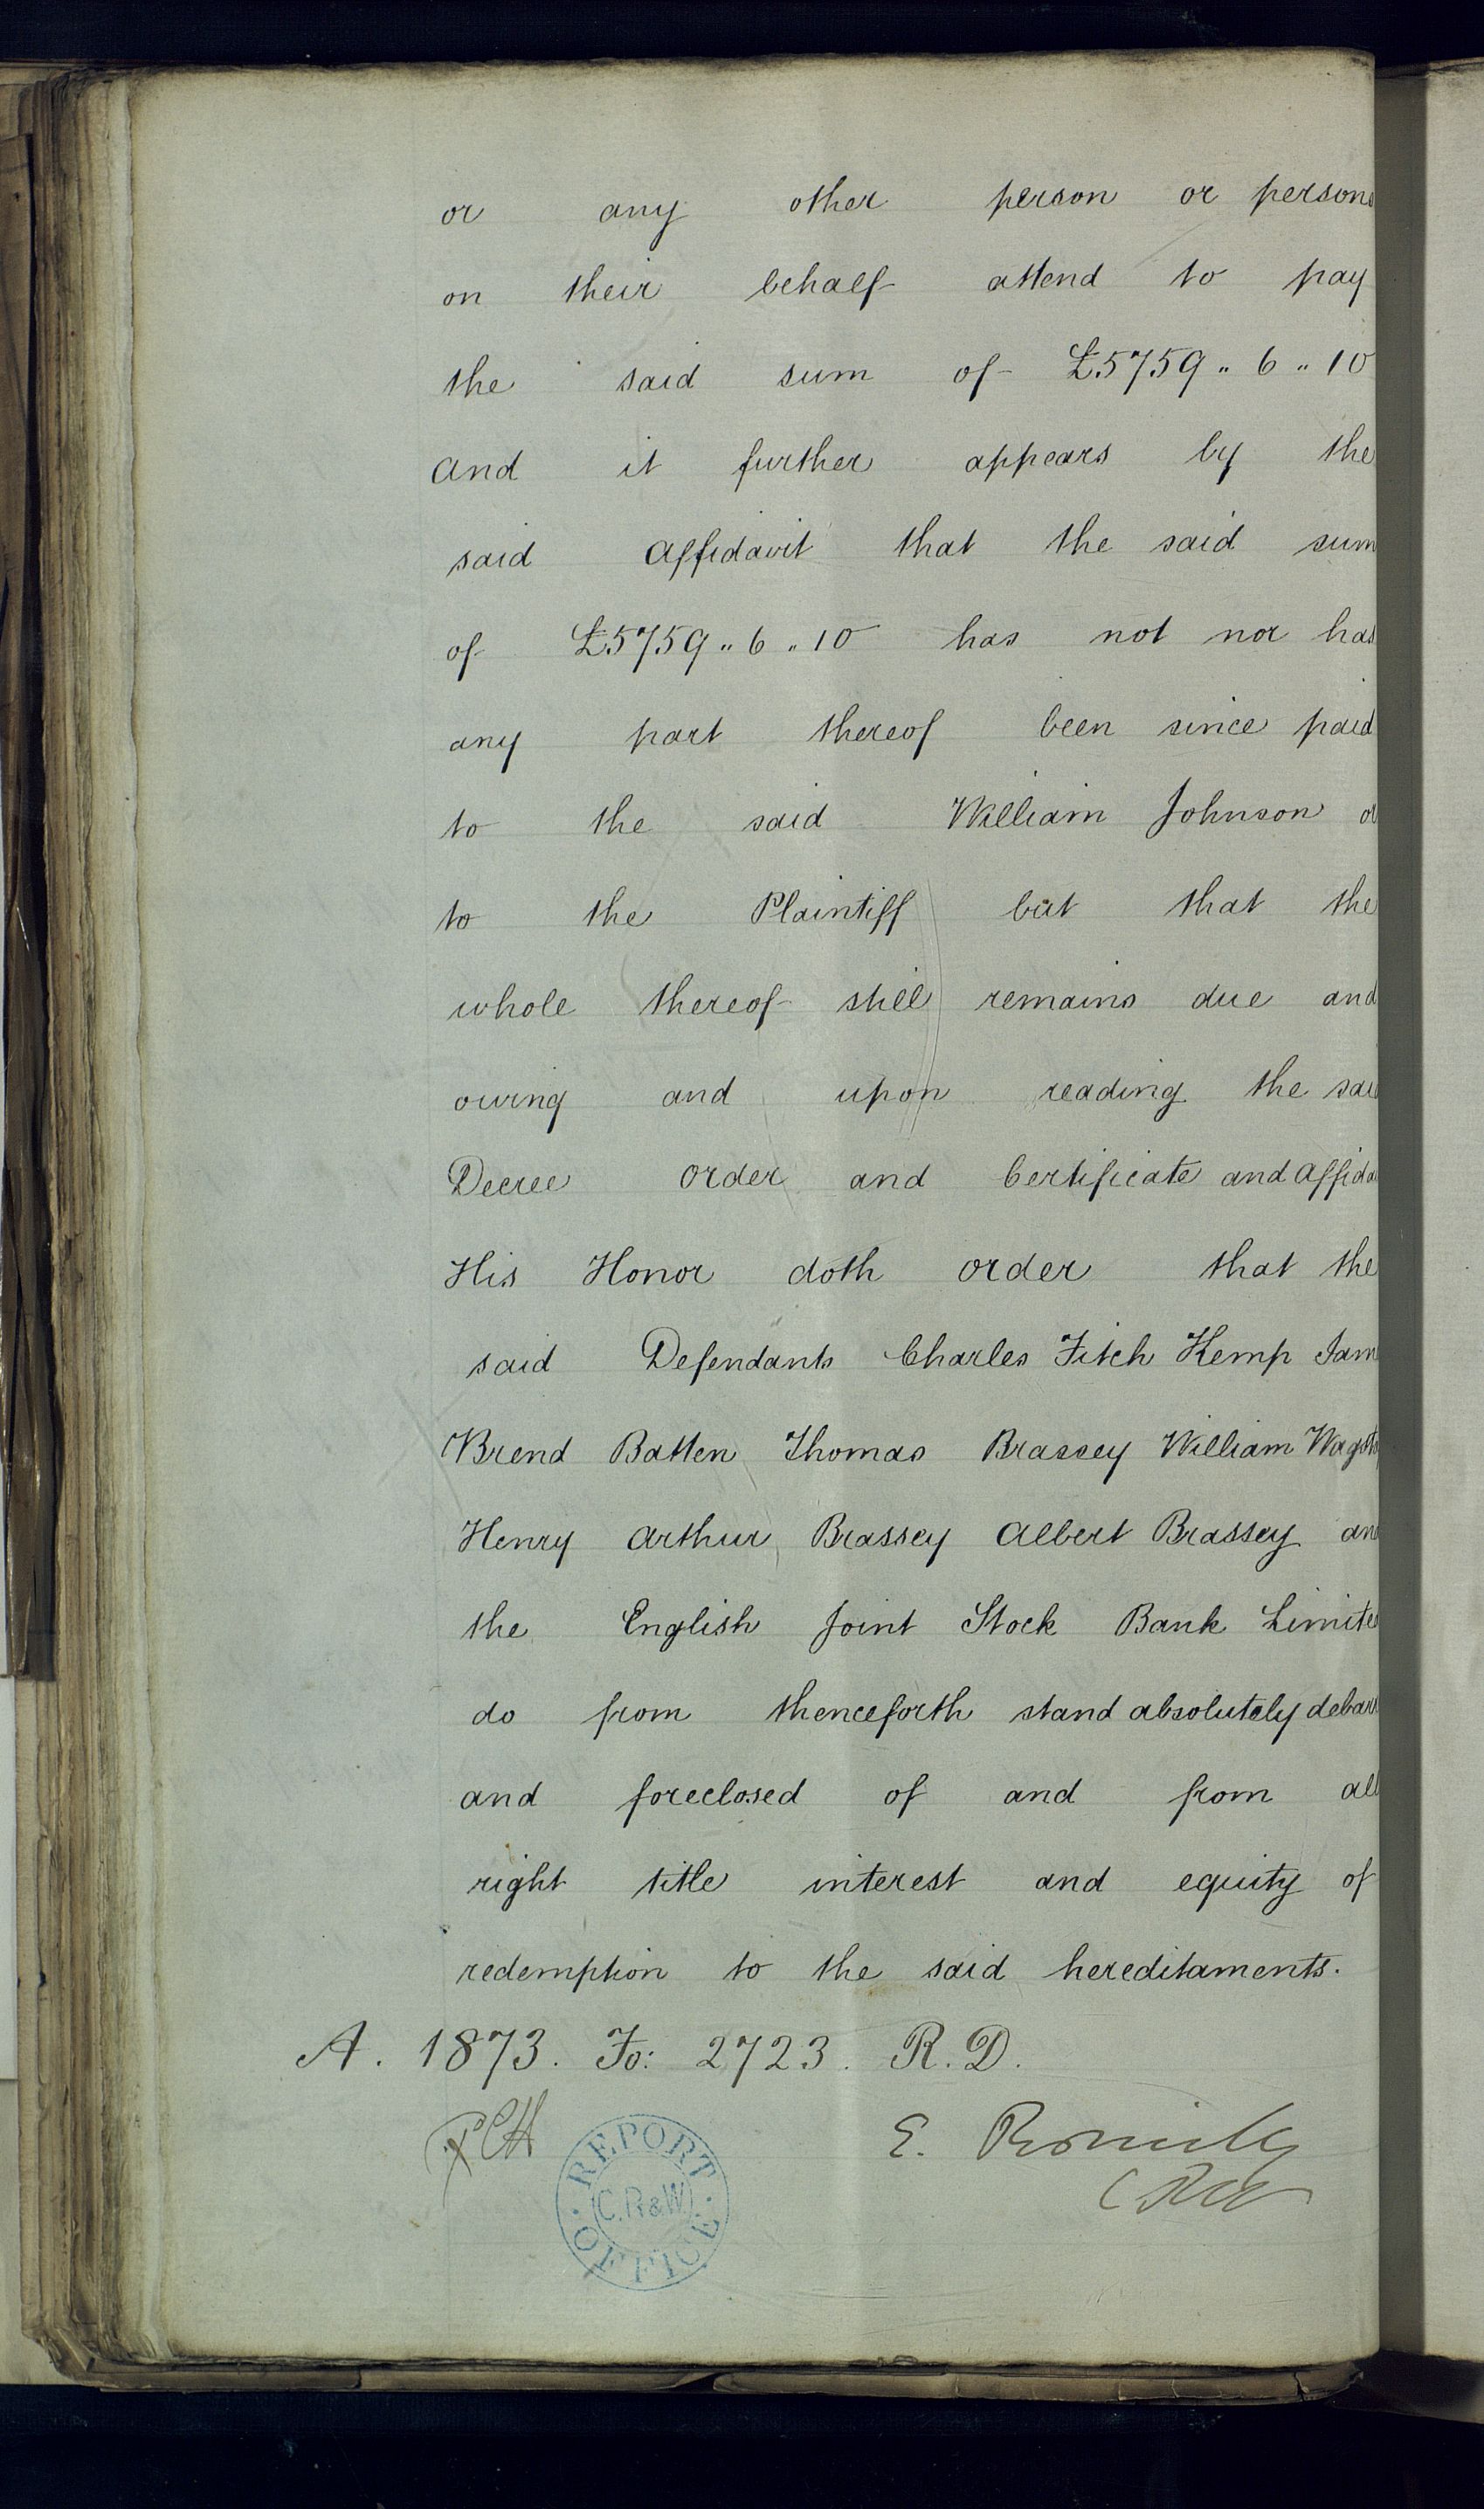 or any other person or persons
on their behalf attend to pay
the said sum of £5759 " 6 " 10
and it further appears by the
said Affidavit that the said sum
of £5759 " 6 " 10 has not nor has
any part thereof been since paid
to the said William Johnson or
to the Plaintiff but that the
whole thereof still remains due and
owing and upon reading the sai
Decree order and Certificate and Affida
His Honor doth order that the
said Defendants Charles Fitch Kemp Jam
Brend Batten Thomas Brassey William Wagsta
Henry Arthur Brassey Albert Brassey an
the English Joint Stock Bank Limite
do from thenceforth stand absolutely debarr
and foreclosed of and from all
right title interest and equity of
redemption to the said hereditaments.
A. 1873. Fo: 2723. R.D.
E. Romilly
REPORT OFFICE
C.R&W